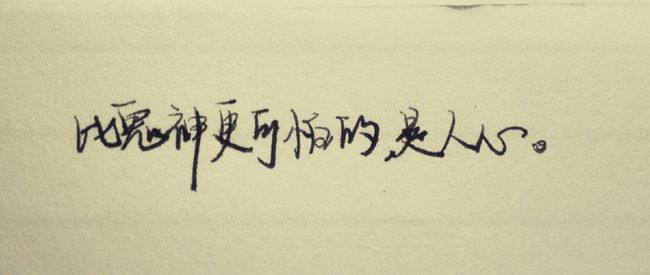 比鬼神更可怕的,是人心。